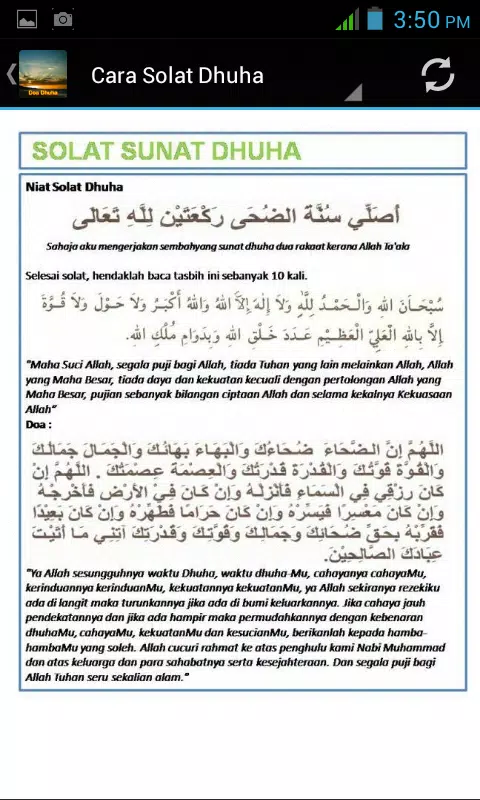 3:50 PM
Doa Dhuha
Cara Solat Dhuha
SOLAT SUNAT DHUHA
Niat Solat Dhuha
أُصَلِّي سُنَّةَ الضُحَى رَكْعَتَيْنِ لِلَّهِ تَعَالَى
Sahaja aku mengerjakan sembahyang sunat dhuha dua rakaat kerana Allah Ta'ala
Selesai solat, hendaklah baca tasbih ini sebanyak 10 kali.
سُبْحَانَ اللهِ وَالْحَمْدُ لِلَّهِ وَلاَ إِلَهَ إِلاَّ اللهُ وَاللهُ أَكْبَرُ وَلاَ حَوْلَ وَلاَ قُوَّةَ
إِلاَّ بِاللهِ الْعَلِيِّ الْعَظِيْمِ عَدَدَ خَلْقِ اللهِ وَبِدَوَامِ مُلْكِ اللهِ.
"Maha Suci Allah, segala puji bagi Allah, tiada Tuhan yang lain melainkan Allah, Allah
yang Maha Besar, tiada daya dan kekuatan kecuali dengan pertolongan Allah yang
Maha Besar, pujian sebanyak bilangan ciptaan Allah dan selama kekalnya Kekuasaan
Allah"
Doa :
اللَّهُمَّ إِنَّ الضَّحَاءَ ضُحَاءُكَ وَالْبَهَاءَ بَهَائُكَ وَالْجَمَالَ جَمَالُكَ
وَالْقُوَّةَ قُوَّتُكَ وَالْقُدْرَةَ قُدْرَتُكَ وَالْعِصْمَةَ عِصْمَتُكَ . اللَّهُمَّ إِنْ
كَانَ رِزْقِي فِي السَّمَاءِ فَأَنْزِلْهُ وَإِنْ كَانَ فِيْ الأَرْضِ فَأَخْرِجْهُ
وَإِنْ كَانَ مُعْسِرًا فَيَسِّرْهُ وَإِنْ كَانَ حَرَامًا فَطَهِّرْهُ وَإِنْ كَانَ بَعِيْدًا
فَقَرِّبْهُ بِحَقِّ ضُحَائِكَ وَجَمَالِكَ وَقُوَّتِكَ وَقُدْرَتِكَ آتِنِي مَا أَتَيْتَ
عِبَادَكَ الصَّالِحِيْنَ.
"Ya Allah sesungguhnya waktu Dhuha, waktu dhuha-Mu, cahayanya cahayaMu,
kerinduannya kerinduanMu, kekuatannya kekuatanMu, ya Allah sekiranya rezekiku
ada di langit maka turunkannya jika ada di bumi keluarkannya. Jika cahaya jauh
pendekatannya dan jika ada hampir maka permudahkannya dengan kebenaran
dhuhaMu, cahayaMu, kekuatanMu dan kesucianMu, berikanlah kepada hamba-
hambaMu yang soleh. Allah cucuri rahmat ke atas penghulu kami Nabi Muhammad
dan atas keluarga dan para sahabatnya serta kesejahteraan. Dan segala puji bagi
Allah Tuhan seru sekalian alam."